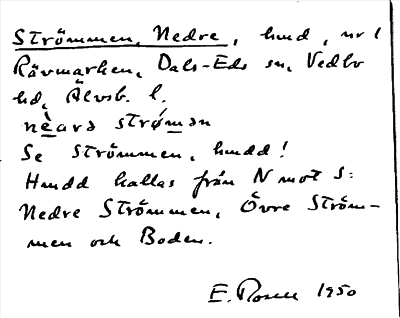 Strömmen, Nedre, hmd, nr 1
Rävmarken, Dals-Eds sn, Vedbo
hd, Älvsb. l.
nèdra strǿmən
Se Strömmen, hmdd!
Hmdd kallas från N mot S:
Nedre Strömmen, Övre Ström-
men och Boden.
E. Rosell 1950